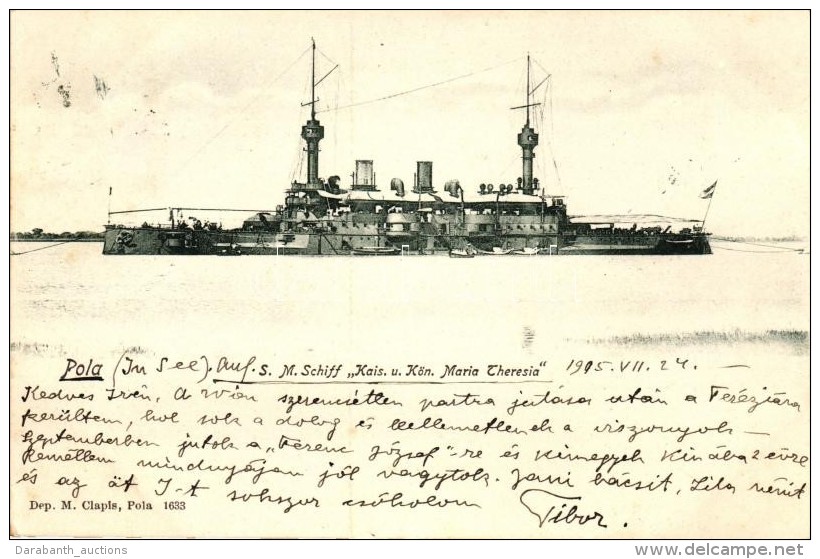 Pola (In See). Auf S. M. Schiff „Kais. u. Kön. Maria Theresia" 1905. VII. 24. —
Kedves Irén, A szerencsétlen partra jutása után a Teréziára
kerültem, hol sok a dolog és kellemetlenek a viszonyok —
Szeptemberben jutok a „Ferenc József"-re és kimegyek Kínába 2 évre
Remélem mindnyájan jól vagytok. Jani bácsit, Lila nénit
és az át J-t sokszor csókolom
Tibor.
Dep. M. Clapis, Pola 1633
Darabanth_auctions
www.delcampe.net